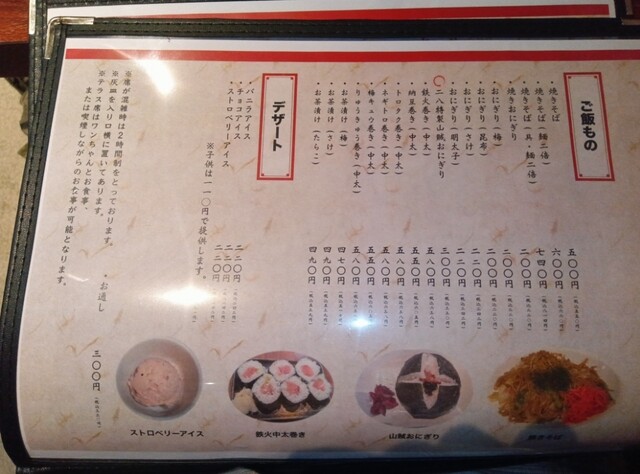 ご飯もの
焼きそば 五〇〇円
焼きそば(麺二倍) 六〇〇円
焼きそば(具・麺二倍) 七四〇円
焼きおにぎり 二〇〇円
おにぎり(梅) 二〇〇円
おにぎり(昆布) 二二〇円
おにぎり(さけ) 二二〇円
おにぎり(明太子) 二二〇円
二八特製山賊おにぎり 三〇〇円
鉄火巻き(中太) 五八〇円
納豆巻き(中太)
トロタク巻き(中太) 五八〇円
ネギトロ巻き(中太) 五八〇円
梅キュウ巻き(中太) 五五〇円
りゅうきゅう巻き(中太) 五八〇円
お茶漬け(梅) 四七〇円
お茶漬け(さけ) 四九〇円
お茶漬け(たらこ) 四九〇円
デザート
・バニラアイス 二二〇円
・チョコアイス 二二〇円
・ストロベリーアイス 二二〇円
※子供は一一〇円で提供します。
※席が混雑時は2時間制をとっております。
※灰皿を入り口横に置いてあります。
※テラス席はワンちゃんとお食事、
または喫煙しながらのお食事が可能となります。
・お通し 三〇〇円
ストロベリーアイス
鉄火中太巻き
山賊おにぎり
焼きそば